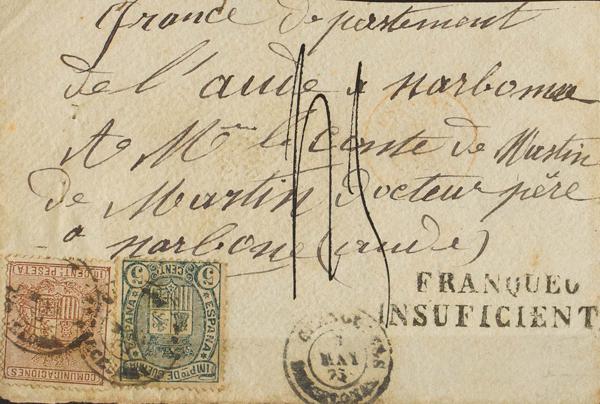 france departement
de l'aude a narbonne
A Mr le conte de Martin
de Martin Docteur père
a narbone (aude)
FRANQUEO
INSUFICIENT
MAY
75
CENT. PESETA
COMUNICACIONES
5 CENT. 5
ESPAÑA
ESPAÑA
IMPTO DE GUERRA